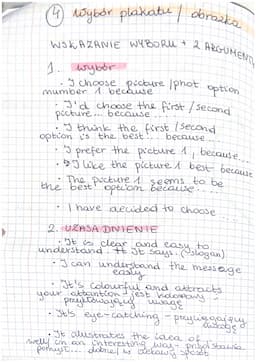 ④ Wybór plakatu / obrazka
WSKAZANIE WYBORU + 2 ARGUMENTY
1. Wybór
• I choose picture/phot option
number 1 because
• I'd choose the first/second
picture... because......
• I think the first/second
option is the best!... because...
• I prefer the picture 1, because...
• I like the picture 1 best because
• The picture 1 seems to be
the best option because....
• I have decided to choose
2. UZASADNIENIE
• It is clear and easy to
understand. It says. (slogan)
• I can understand the message
easily
• It's colourful and attracts
your attantion - jest kolorowy i
przyciągający uwagę
• It's eye-catching - przyciągający
uwagę
• It illustrates the idea of
well/in an interesting way - przedstawia
pomysł... dobrze/w ciekawy sposób